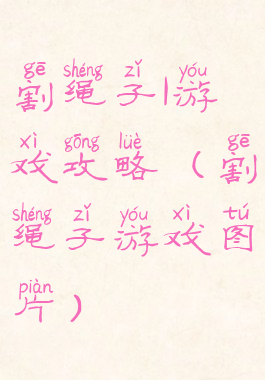 gē shéng zǐ yóu
割绳子|游
xì gōng lüè gē
戏攻略(割
shéng zǐ yóu xì tú
绳子游戏图
piàn
片)